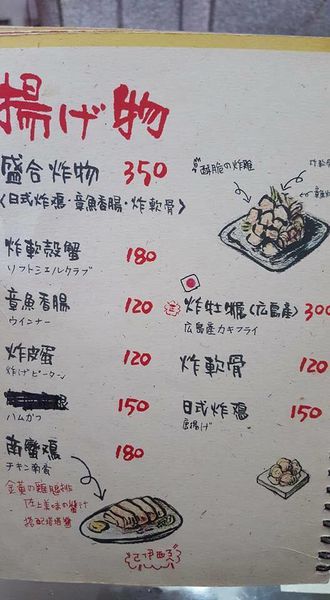 揚げ物
盛合炸物 350
〈日式炸鶏・章魚香腸・炸軟骨〉
酥脆の炸雞
炸軟殼蟹 180
ソフトシェルクラブ
章魚香腸 120
ウインナー
炸皮蛋 120
炸げピータン
150
ハムカツ
南蠻鶏 180
チキン南蛮
金黃の雞腿排
佐上美味の醬汁
搭配塔塔醬
炸牡蠣(広島産) 300
広島産カキフライ
炸軟骨 120
日式炸鶏 150
唐揚げ